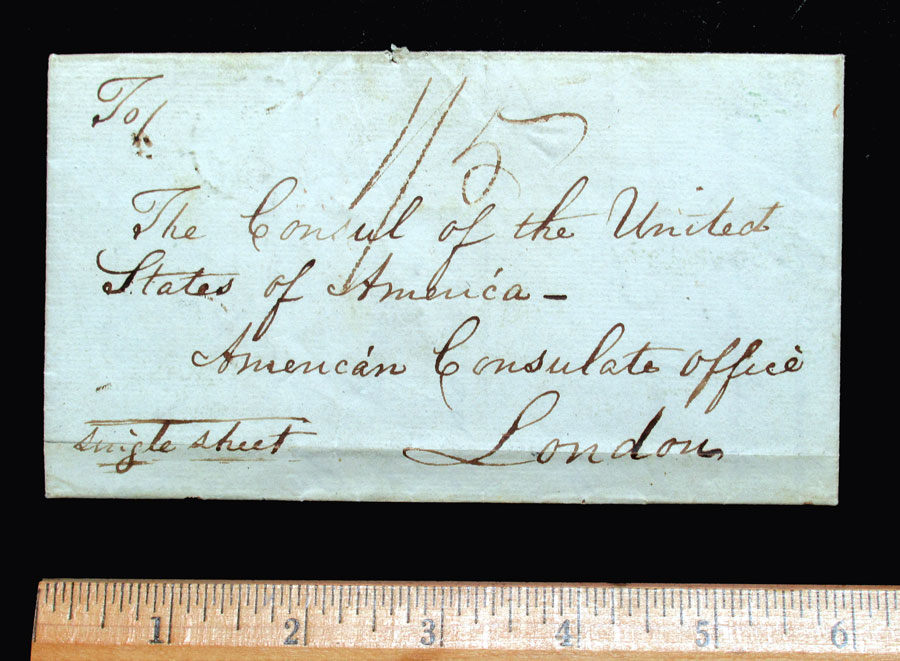 To/
1/5
The Consul of the United
States of America –
American Consulate office
single sheet
London
1 2 3 4 5 6